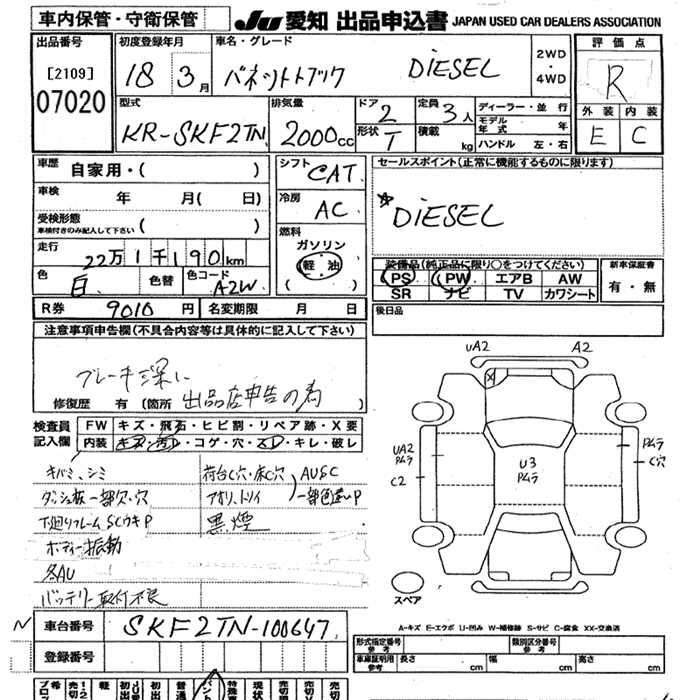 車内保管・守衛保管
JU 愛知 出品申込書 JAPAN USED CAR DEALERS ASSOCIATION
出品番号
[2109]
07020
初度登録年月
18 3月
車名・グレード
バネットトラック DiESEL
2WD
・
4WD
評価点
R
外装 内装
E C
型式
KR-SKF2TN
排気量
2000cc
ドア 2
形状 T
定員 3人
積載 kg
ディーラー・並行
モデル年式 年
ハンドル 左・右
車歴 自家用・( )
車検 年 月( 日)
受検形態
車検付きのみ記入して下さい ( )
走行 22万1千190km
色 白 色替 色コード A2W
シフト CAT
冷房 AC
燃料
ガソリン
軽油
セールスポイント(正常に機能するものに限ります)
☆DiESEL
装備品(純正品に限り○をつけてください)
PS PW エアB AW
SR ナビ TV カワシート
新車保証書
有・無
R券 9010円 名変期限 月 日
後日品
注意事項申告欄(不具合内容等は具体的に記入して下さい)
ブレーキ深い
修復歴 有 (箇所 出品店申告の為
検査員記入欄
FW キズ・飛石・ヒビ割・リペア跡・X要
内装 キズ・汚レ・コゲ・穴・スレ・キレ・破レ
キバミ、シミ
荷台C穴・床C穴 AUSC
ダッシュ板一部欠・穴
アオリ、トリイ 一部色違いP
下廻りフレームSCウキP
黒煙
ボディー振動
各AU
バッテリー取付不良
UA2 A2
X
UA2
Pムラ
C2
U3
Pムラ
Pムラ
C穴
スペア
A-キズ E-エクボ U-凹み W-補修跡 S-サビ C-腐食 XX-交換済
N
車台番号 SKF2TN-100647
登録番号
形式指定番号 参考
類別区分番号 参考
車庫証明用参考 長さ cm 幅 cm 高さ cm